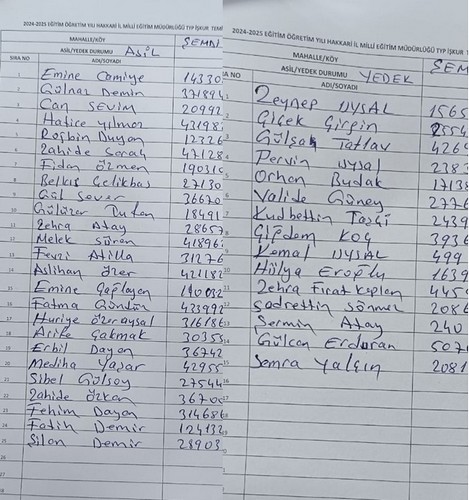 2024-2025 EĞİTİM ÖĞRETİM YILI HAKKARİ İL MİLLİ EĞİTİM MÜDÜRLÜĞÜ TYP İŞKUR TEMİ
MAHALLE/KÖY ŞEMDİ
ASİL/YEDEK DURUMU ASİL
SIRA NO ADI/SOYADI
Emine Camiye 14330
2 Gülnaz Demin 371894
3 Can SEVİM 20992
4 Hatice yılmaz 43198
5 Rojbin Duyan 12326
6 Zahide Saraç 47128
7 Fidan özmen 19031
8 Belkıs Çelikbaş 27130
9 Gül Sever 36670
10 Gülüzer Duten 18491
11 Zehra Atay 28657
12 Melek süren 41896
13 Fevzi Atilla 31276
14 Aslıhan özer 421182
15 Emine Çağlayan 140032
16 Fatma Gündür 433992
17 Huriye özeraysal 316186
18 Arife Çakmak 30355
19 Erbil Dayan 36742
20 Mediha Yaşar 42955
21 Sibel Gülsoy 27544
22 Zahide özkan 36700
23 Fehim Dayan 314686
24 Fatih Demir 124132
25 Silan Demir 28903
26
27
2024-2025 EĞİTİM ÖĞRETİM YILI HAKKARİ İL MİLLİ EĞİTİM MÜDÜRLÜĞÜ TYP İŞ
MAHALLE/KÖY ŞEM
ASİL/YEDEK DURUMU YEDEK
RA NO ADI/SOYADI
Zeynep UYSAL 1565
Çiçek Girgin 2554
Gülşah Tatlav 4264
Pervin uysal 2383
Orhan Budak 1713
Valide Güney 2776
Kudbettin Taşçı 2439
Çiğdem KOÇ 3936
Kemal UYSAL 499
Hülya Eroğlu 1639
Zehra Fırat Kaplan 445
Sadrettin Sönmez 2086
Sermin Atay 240
Gülcan Erduran 507
Semra Yalçın 2081